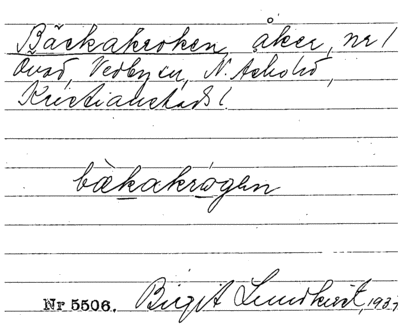 Bäckakroken, åker, nr 1
Ousö, Vedbyen, N. Åsbo hd,
Kristianstads l.
bækakrogen
Nr 5506. Birgit Lundkvist, 1937